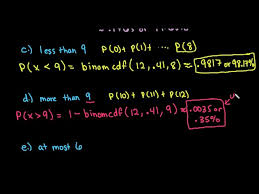 c.) less than 9 P(0) + P(1) + ... P(8)
P(x < 9) = binomcdf (12, .41, 8) ≈ .9817 or 98.17%
d.) more than 9 P(10) + P(11) + P(12)
P(x>9) = 1 - binomcdf (12, .41, 9) ≈ .0035 or .35%
e.) at most 6